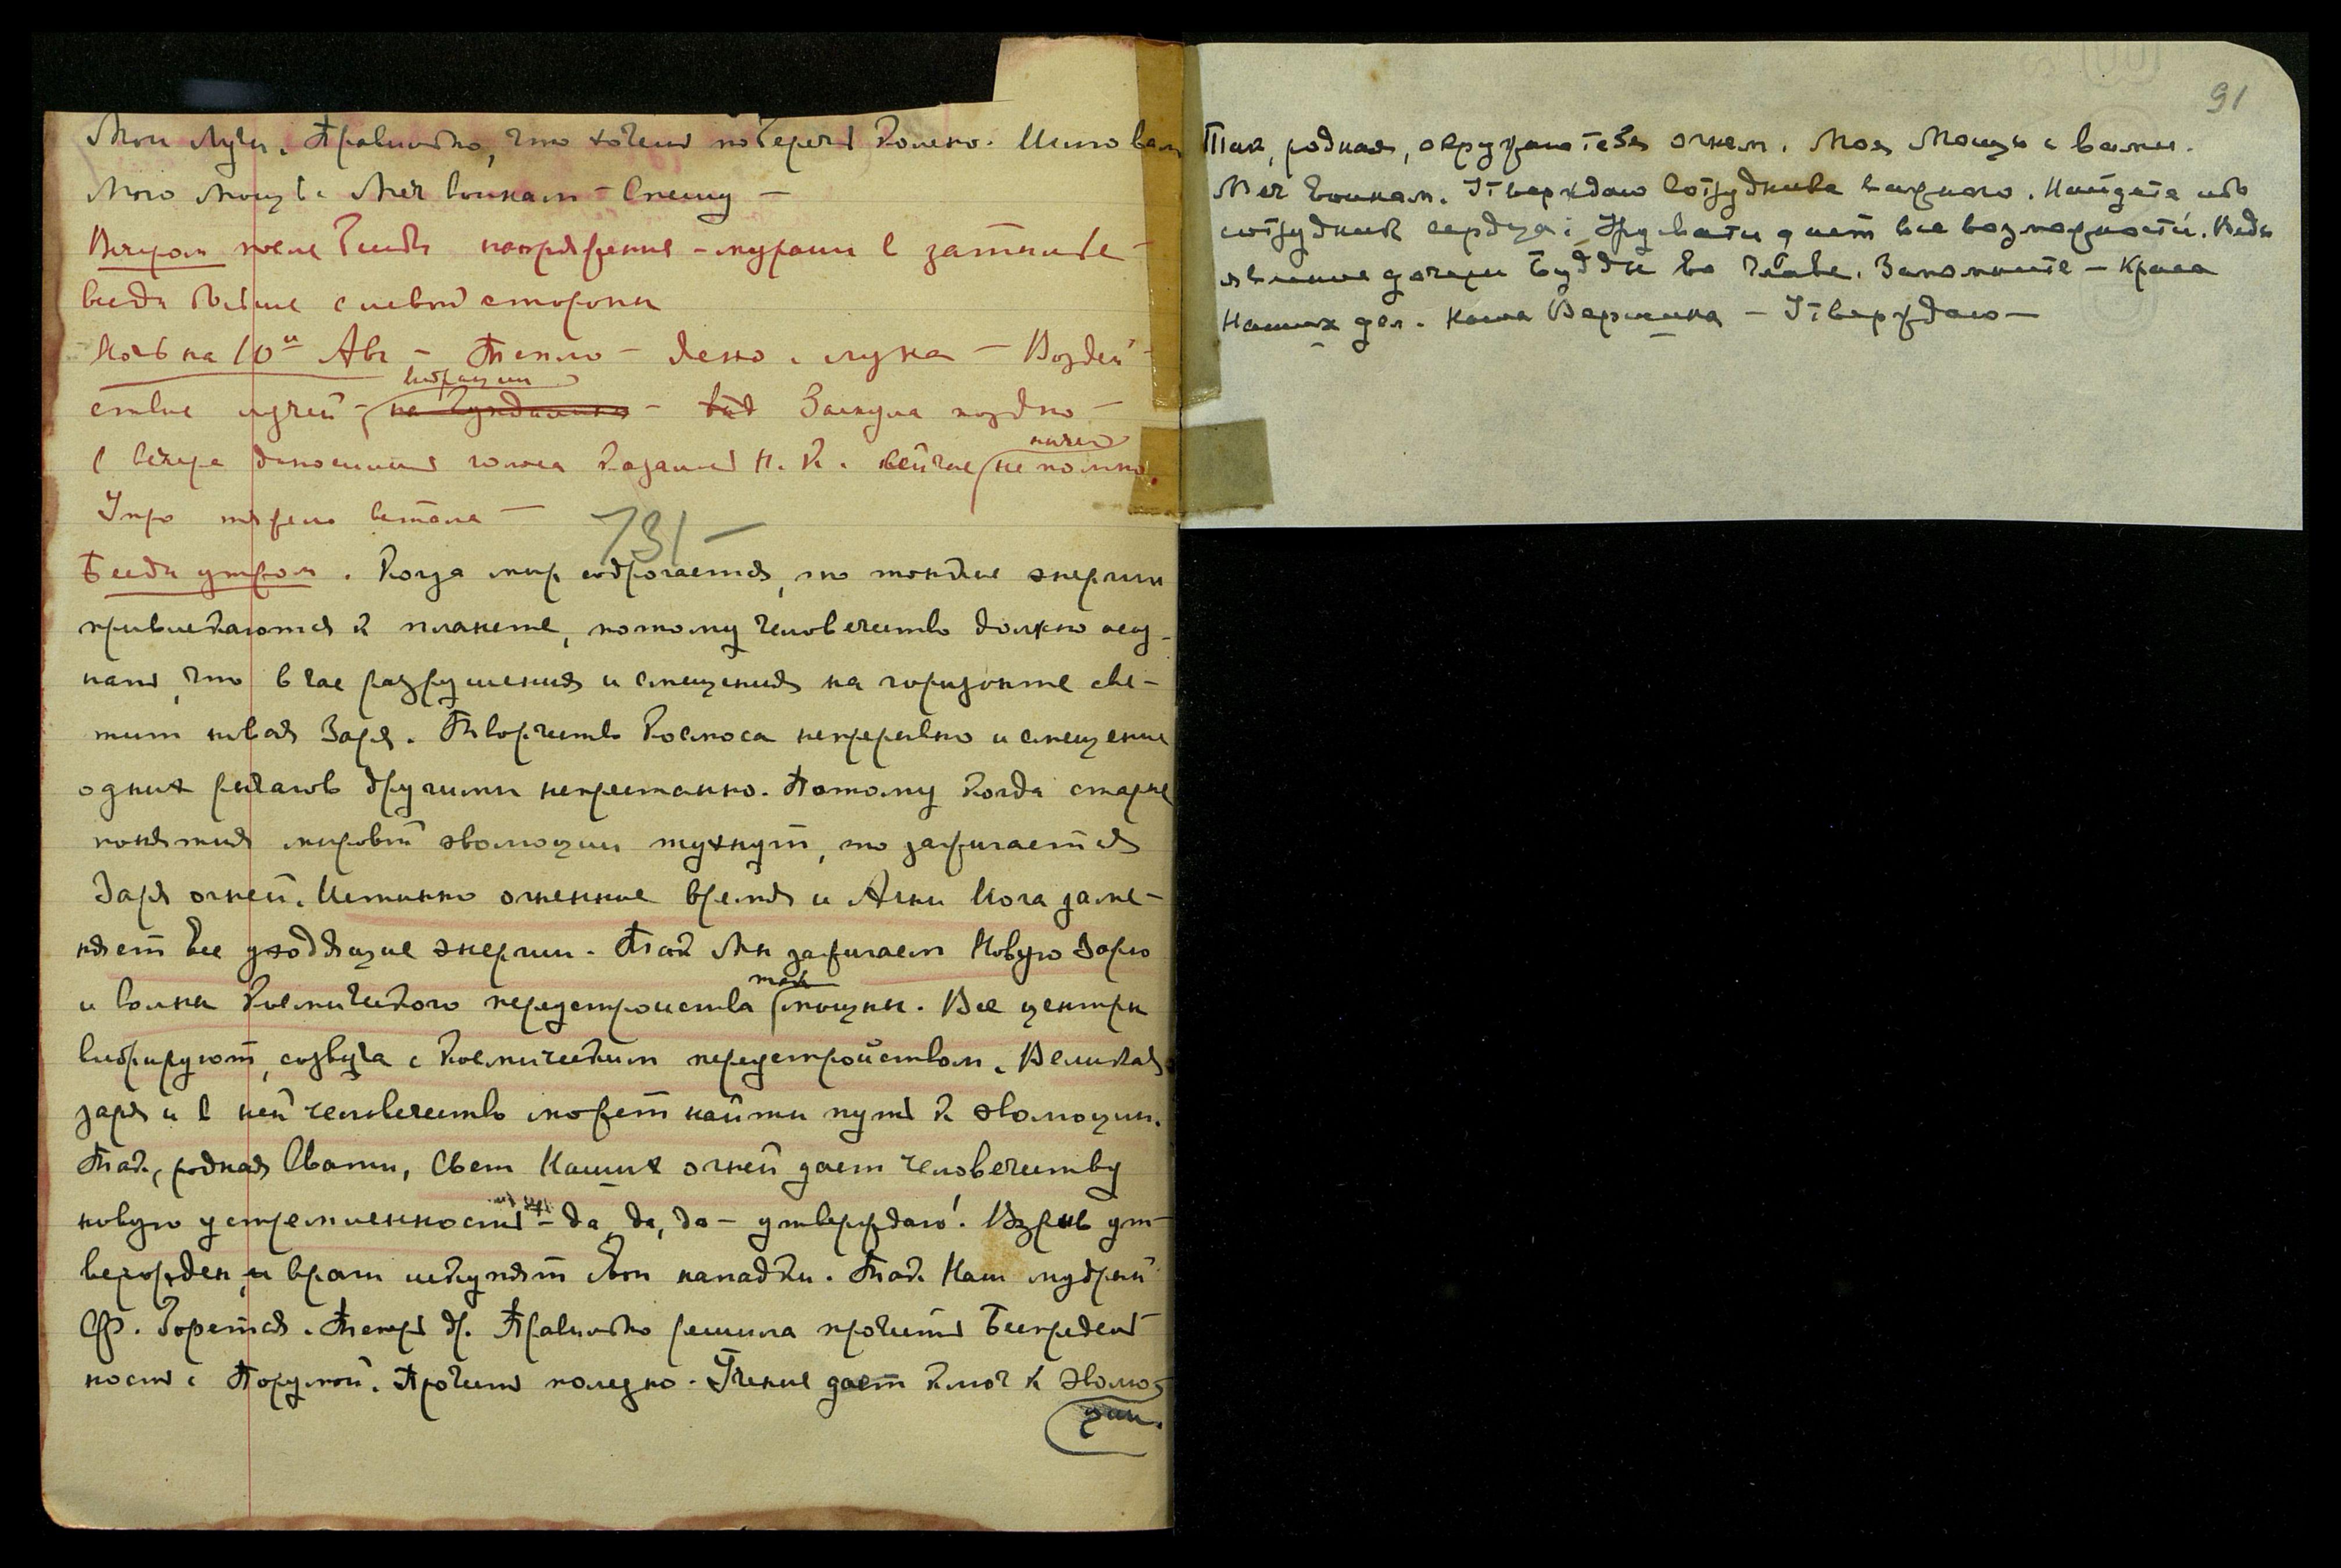 Мои Лучи. Правильно, что хочешь поберечь колено. Шлю вам
Мою Мощь и Меч воинам – Спешу –
Вечером после Беседы напряжение – мураши в затылке –
всегда больше с левой стороны
Ночь на 10ое Авг – Тепло – Ясно и луна – Воздей-
вибрации
ствие лучей – на Кундалини – Заснула поздно –
С вечера доносились голоса казалось Н. К. сейчас не помню
ничего
Утро тяжело встала –
731 –
Беседа утром. Когда мир содрогается, то тонкие энергии
привлекаются к планете, потому человечество должно осоз-
нать, что в час разрушения и смещения на горизонте све-
тит новая Заря. Творчество Космоса непрерывно и смещение
одних рычагов другими непрестанно. Потому когда старые
понятия мировой эволюции тухнут, то зажигается
Заря огней. Истинно огненное время и Агни Йога заме-
няет все уходящие энергии. Так Мы зажигаем Новую Зарю
так
и волны космического переустройства мощны. Все центры
вибрируют, созвуча с космическим переустройством. Великая
заря и в ней человечество может найти путь к эволюции.
Так, родная Свати, Свет Наших огней дает человечеству
новую устремленность – да, да, да – утверждаю! Взрыв ут-
вержден, и враги искупят свои нападки. Так Наш мудрый
Ф. борется. Теперь др. Правильно решила прочесть Беспредель-
ность с Порумой. Прочесть полезно. Учение дает ключ к эволю-
ции.
91
Так, родная, окружаю тебя огнем. Моя Мощь с вами.
Меч воинам. Утверждаю сотрудника важного. Найдете
сотрудник сердца; Урусвати дает все возможности. Ведь
явление дочери Будды во главе. Запомните – Краса
Наших дел. Наша Вершина – Утверждаю –